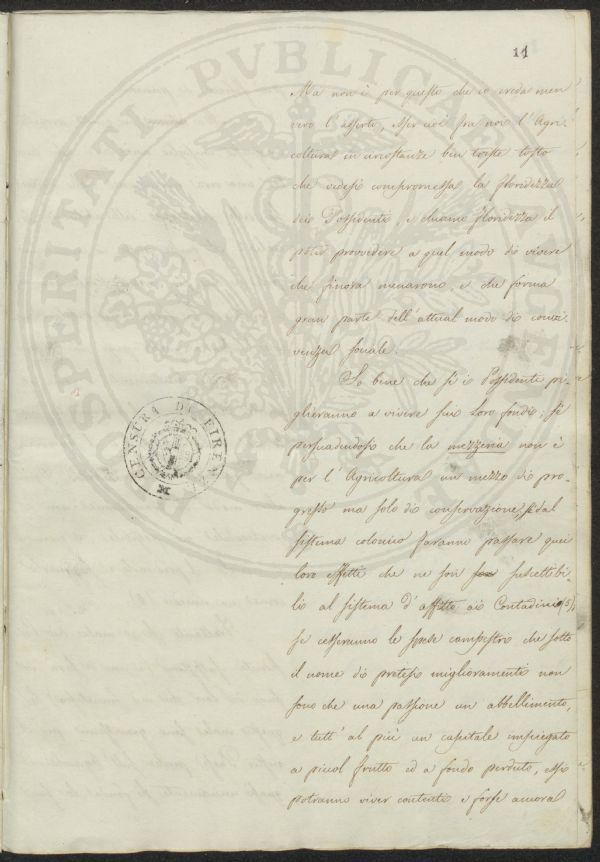 11
Ma non è per questo che io creda men
vero l'asserto, esser cioè fra noi l'Agri-
coltura in circostanze ben triste tosto
che vedesi compromessa la floridezza
dei Possidenti, e chiamo floridezza il
poter provvedere a quel modo di vivere
che finora menarono, e che forma
gran parte dell'attual modo di convi-
venza sociale.
So bene che se i Possidenti pi-
glieranno a vivere sui loro fondi; se
persuadendosi che la mezzeria non è
per l'Agricoltura un mezzo di pro-
gresso ma solo di conservazione, dal
sistema colonico faranno passare quei
loro effetti che ne son suscettibi-
li al sistema d'affitto ai Contadini (5),
se cesseranno le spese campestri che sotto
il nome di pretesi miglioramenti non
sono che una passione un abbellimento,
e tutt'al più un capitale impiegato
a piccol frutto ed a fondo perduto, essi
potranno viver contenti e forse ancora
CENSURA DI FIRENZE
PROSPERITATI PVBLICAE